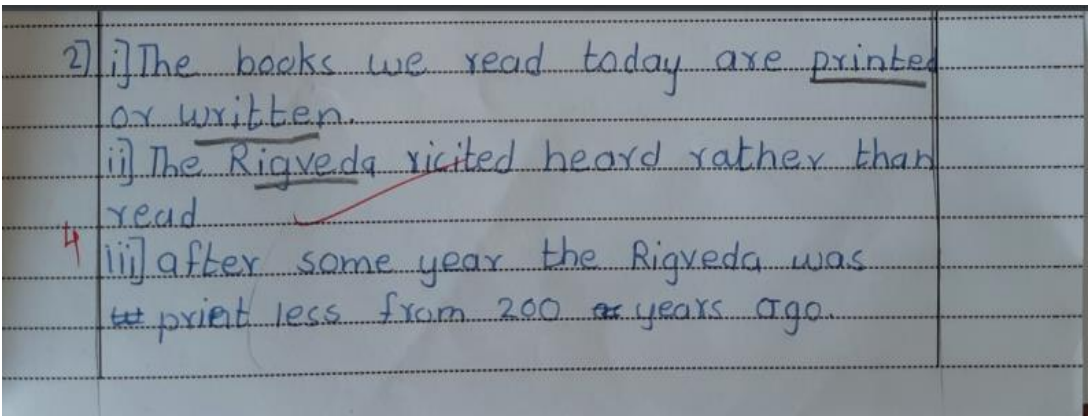 2) i] The books we read today are printed
or written.
ii] The Rigveda ricited heard rather than
read
4
iii] after some year the Rigveda was
print less from 200 years ago.